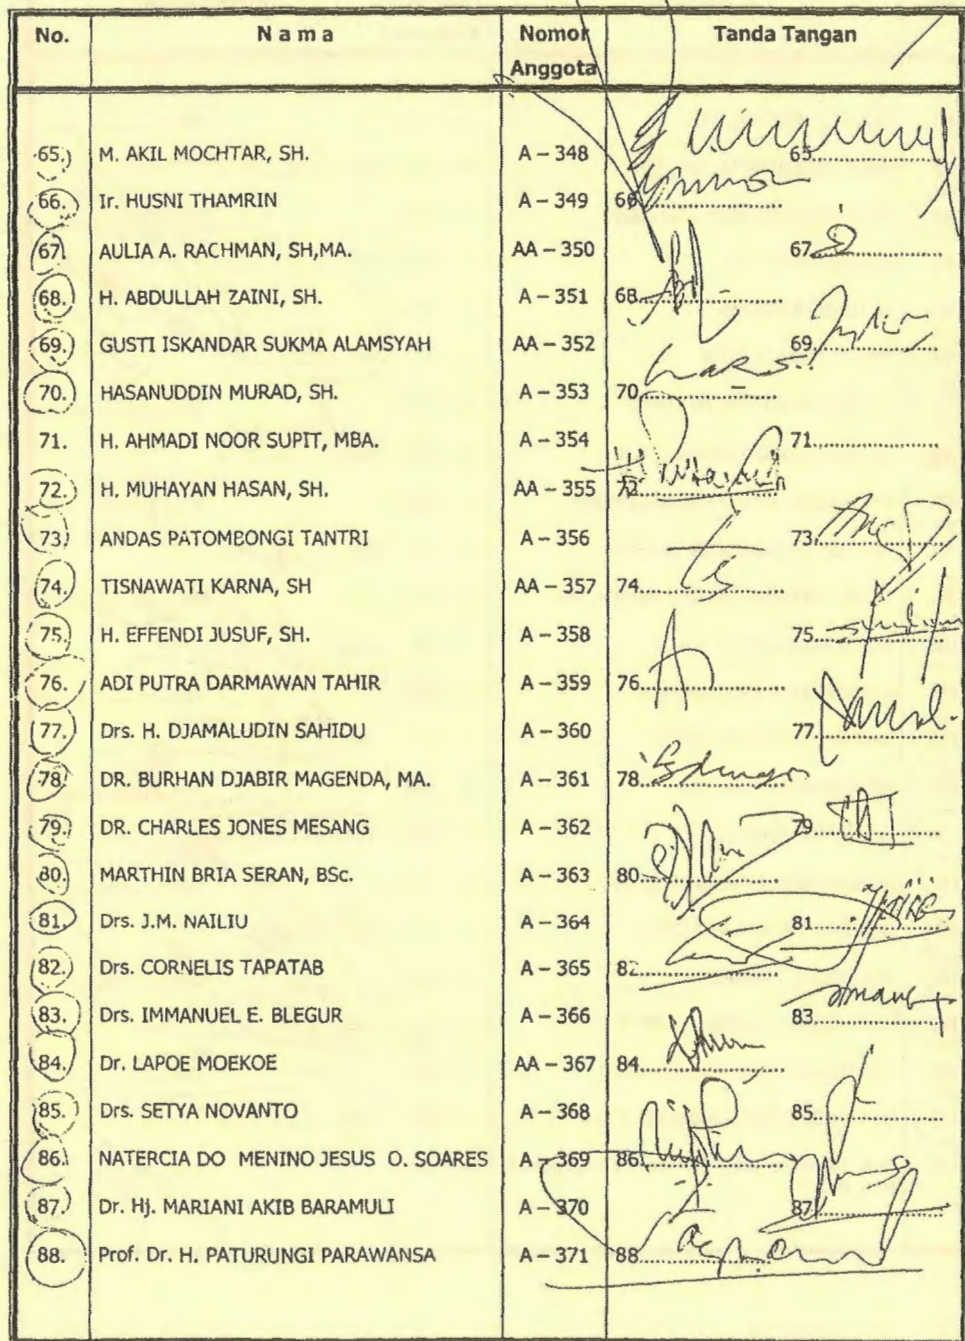 No. Nama Nomor Anggota Tanda Tangan
65. M. AKIL MOCHTAR, SH. A – 348 65.
66. Ir. HUSNI THAMRIN A – 349 66.
67. AULIA A. RACHMAN, SH,MA. AA – 350 67.
68. H. ABDULLAH ZAINI, SH. A – 351 68.
69. GUSTI ISKANDAR SUKMA ALAMSYAH AA – 352 69.
70. HASANUDDIN MURAD, SH. A – 353 70.
71. H. AHMADI NOOR SUPIT, MBA. A – 354 71.
72. H. MUHAYAN HASAN, SH. AA – 355 72.
73. ANDAS PATOMBONGI TANTRI A – 356 73.
74. TISNAWATI KARNA, SH AA – 357 74.
75. H. EFFENDI JUSUF, SH. A – 358 75.
76. ADI PUTRA DARMAWAN TAHIR A – 359 76.
77. Drs. H. DJAMALUDIN SAHIDU A – 360 77.
78. DR. BURHAN DJABIR MAGENDA, MA. A – 361 78.
79. DR. CHARLES JONES MESANG A – 362 79.
80. MARTHIN BRIA SERAN, BSc. A – 363 80.
81. Drs. J.M. NAILIU A – 364 81.
82. Drs. CORNELIS TAPATAB A – 365 82.
83. Drs. IMMANUEL E. BLEGUR A – 366 83.
84. Dr. LAPOE MOEKOE AA – 367 84.
85. Drs. SETYA NOVANTO A – 368 85.
86. NATERCIA DO MENINO JESUS O. SOARES A – 369 86.
87. Dr. Hj. MARIANI AKIB BARAMULI A – 370 87.
88. Prof. Dr. H. PATURUNGI PARAWANSA A – 371 88.